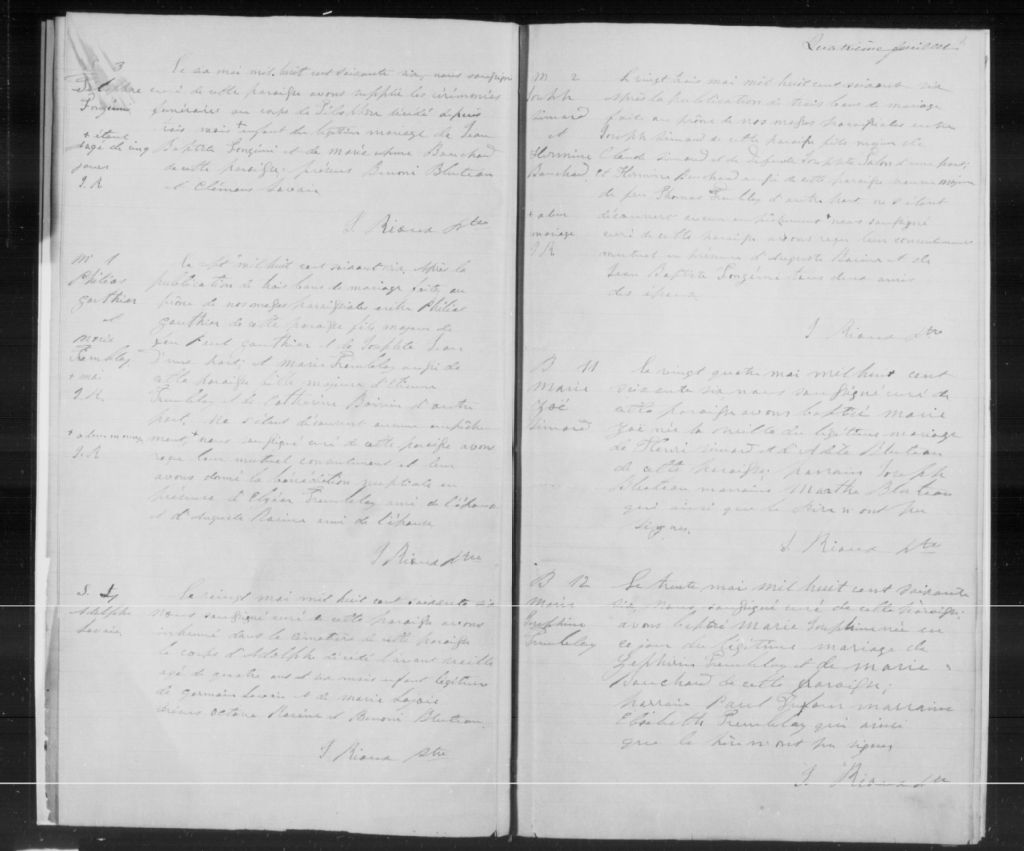 S 3
Télesphore
Fongémi
+ étant
âgé de cinq
jours
J. R
Le dix mai mil huit cent soixante six, nous soussigné
curé de cette paroisse avons suppléé les cérémonies
funéraires au corps de Télesphore décédé depuis
trois mois + enfant du légitime mariage de Jean
Baptiste Fongémi et de Marie Bouchard
de cette paroisse; présens Benoni Bluteau
et Clémens Savain
J. Rioux Ptre
M 1
Philias
Gauthier
et
Marie
Tremblay
+ mai
J. R.
+ à leur mariage
J. R
Le sept + mil huit cent soixante six, après la
publication de trois bans de mariage faite au
prône de nos messes paroissiales entre Philias
Gauthier de cette paroisse fils majeur de
feu Paul Gauthier et de Josephte Jean
d'une part; et Marie Tremblay aussi de
cette paroisse fille majeure d'Etienne
Tremblay et de Catherine Boivin d'autre
part. Ne s'étant découvert aucun empêche
ment, + nous soussigné curé de cette paroisse avons
reçu leur mutuel consentement et leur
avons donné la bénédiction nuptiale en
présence d'Elzéar Tremblay ami de l'époux
et d'Auguste Racine ami de l'épouse
J. Rioux Ptre
S. 4
Adolphe
Savain
Le vingt mai mil huit cent soixante six
nous soussigné curé de cette paroisse avons
inhumé dans le cimetière de cette paroisse
le corps d'Adolphe décédé l'avant veille
agé de quatre ans et six mois enfant légitime
de Germain Savain et de Marie Lajoie
présens Octave Racine et Benoni Bluteau
J. Rioux Ptre
Quatrième feuillet
M 2
Joseph
Simard
et
Hermine
Bouchard
+ à leur
mariage
J. R
Le vingt trois mai mil huit cent soixante six
après la publication de trois bans de mariage
faite au prône de nos messes paroissiales entre
Joseph Simard de cette paroisse fils majeur de
Claude Simard et de défunte Josephte d'une part;
et Hermine Bouchard aussi de cette paroisse veuve majeure
de feu Thomas Tremblay d'autre part ne s'étant
découvert aucun empêchement + nous soussigné
curé de cette paroisse avons reçu leur consentement
mutuel en présence d'Auguste Racine et de
Jean Baptiste Fongémi tous deux amis
des époux
J. Rioux Ptre
B 11
Marie
Zoé
Simard
Le vingt quatre mai mil huit cent
soixante six nous soussigné curé de
cette paroisse avons baptisé Marie
Zoé née la veille du légitime mariage
de Henri Simard et d'Adèle Bluteau
de cette paroisse; parrain Joseph
Bluteau marraine Marthe Bluteau
qui ainsi que le père n'ont pu
signer.
J. Rioux Ptre
B 12
Marie
Josephine
Tremblay
Le trente mai mil huit cent soixante
six, nous soussigné curé de cette paroisse,
avons baptisé Marie Josephine née en
ce jour du légitime mariage de
Zéphirin Tremblay et de Marie
Bouchard de cette paroisse;
parrain Paul Dufour marraine
Elisabeth Tremblay qui ainsi
que le père n'ont pu signer
J. Rioux Ptre